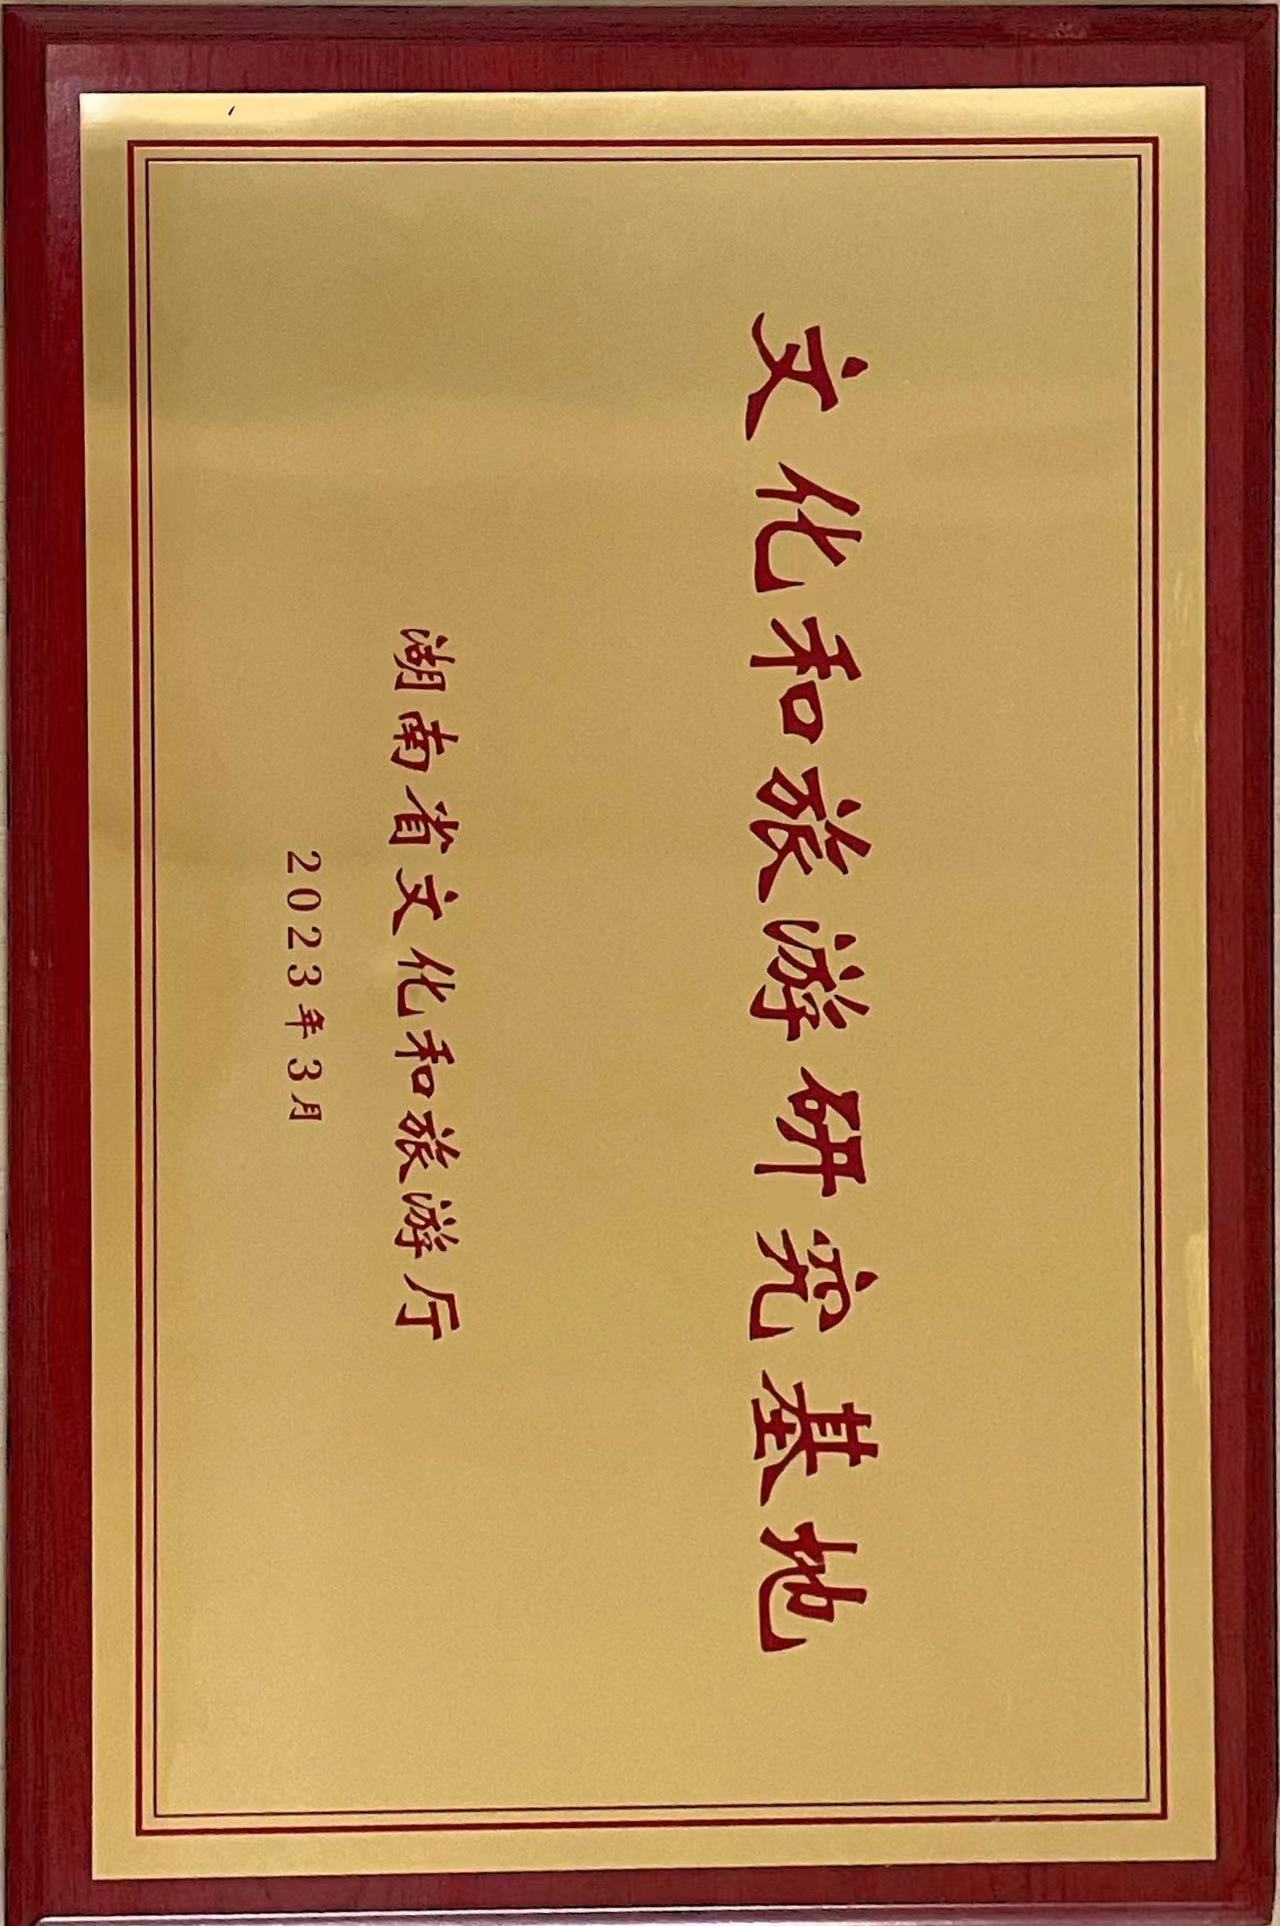 文化和旅游研究基地
湖南省文化和旅游厅
2023年3月